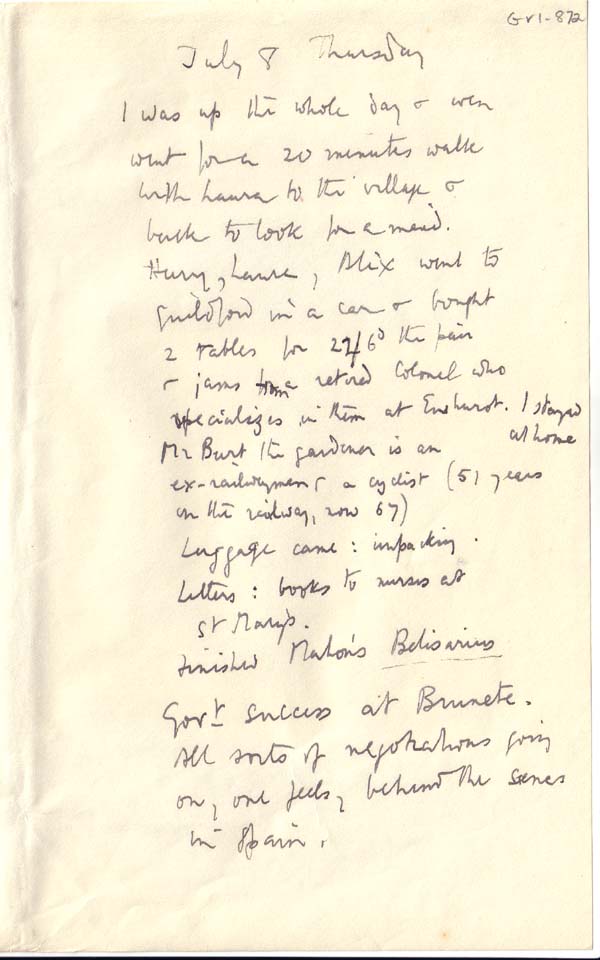 GVI-872
July 8 Thursday
I was up the whole day & even
went for a 20 minutes walk
with Laura to the village &
back to look for a maid.
Harry, Laura, Blix went to
Guildford in a car & bought
2 tables for 27/6d the pair
& jams from a retired Colonel who
specializes in them at Ewhurst. I stayed
at home
Mr Burt the gardener is an
ex-railwayman & a cyclist (51 years
on the railway, now 67)
Luggage came: unpacking.
Letters: books to nurses at
St Mary's.
Finished Mahon's Belisarius
Govt success at Brunete.
All sorts of negotiations going
on, one feels, behind the scenes
in Spain.